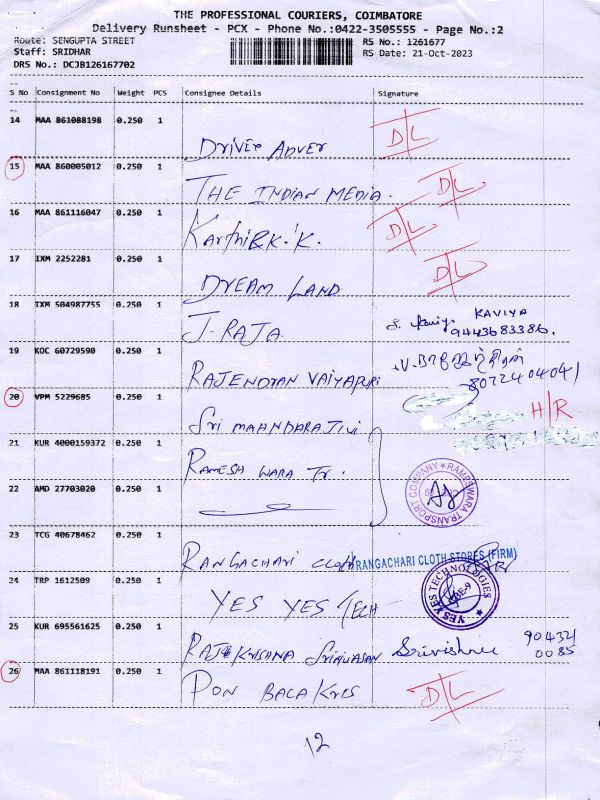 THE PROFESSIONAL COURIERS, COIMBATORE
Delivery Runsheet - PCX - Phone No.:0422-3505555 - Page No.:2
Route: SENGUPTA STREET
RS No.: 1261677
Staff: SRIDHAR
RS Date: 21-Oct-2023
DRS No.: DCJB126167702
S No Consignment No Weight PCS Consignee Details Signature
14 MAA 861088198 0.250 1 Driver Adver D/L
15 MAA 860005012 0.250 1 THE INDIAN MEDIA. D/L
16 MAA 861116047 0.250 1 Karthik.K. D/L
17 IXM 2252281 0.250 1 DREAM LAND D/L
18 IXM 504987755 0.250 1 J. RAJA KAVIYA
9443683386.
19 KOC 60729590 0.250 1 RAJENDRAN VAIYAPURI
8072240404 1
20 VPM 5229685 0.250 1 Sri H/R
21 KUR 4000159372 0.250 1 RAMESH WARA Tr.
22 AMD 27703020 0.250 1
RAMESWARA TRANSPORT COMPANY
23 TCG 40678462 0.250 1 RANGACHARI CLOTH
RANGACHARI CLOTH STORES (FIRM)
24 TRP 1612509 0.250 1 YES YES TECH
YES YES TECHNOLOGIES
CBE-9
25 KUR 695561625 0.250 1 RAJ KRISHNA SRINIVASAN Srivishnu 90432
0085
26 MAA 861118191 0.250 1 PON BALA KRIS D/L
12